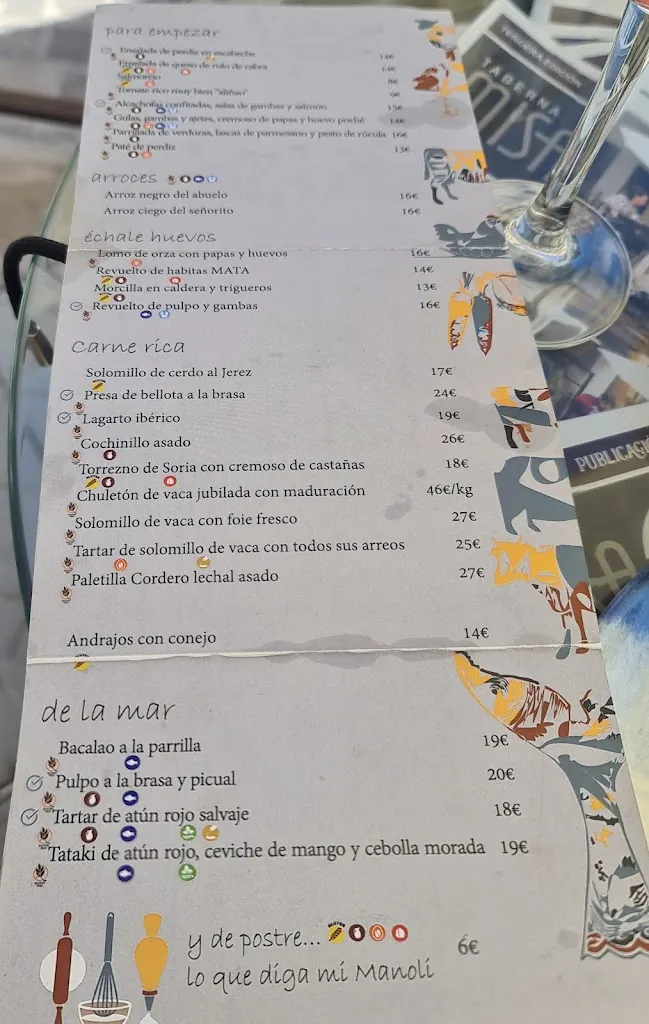 para empezar
Ensalada de perdiz en escabeche 14€
Ensalada de queso de rulo de cabra 14€
Salmorejo 8€
Tomate rico muy bien "aliñao" 9€
Alcachofas confitadas, salsa de gambas y salmón 15€
Gulas, gambas y ajetes, cremoso de papas y huevo poché 14€
Parrillada de verduras, lascas de parmesano y pesto de rúcula 16€
Paté de perdiz 13€
arroces
Arroz negro del abuelo 16€
Arroz ciego del señorito 16€
échale huevos
Lomo de orza con papas y huevos 16€
Revuelto de habitas MATA 14€
Morcilla en caldera y trigueros 13€
Revuelto de pulpo y gambas 16€
Carne rica
Solomillo de cerdo al Jerez 17€
Presa de bellota a la brasa 24€
Lagarto ibérico 19€
Cochinillo asado 26€
Torrezno de Soria con cremoso de castañas 18€
Chuletón de vaca jubilada con maduración 46€/kg
Solomillo de vaca con foie fresco 27€
Tartar de solomillo de vaca con todos sus arreos 25€
Paletilla Cordero lechal asado 27€
Andrajos con conejo 14€
de la mar
Bacalao a la parrilla 19€
Pulpo a la brasa y picual 20€
Tartar de atún rojo salvaje 18€
Tataki de atún rojo, ceviche de mango y cebolla morada 19€
y de postre...
lo que diga mi Manoli 6€
TERCERA EDICIÓN
TABERNA
PUBLICACI